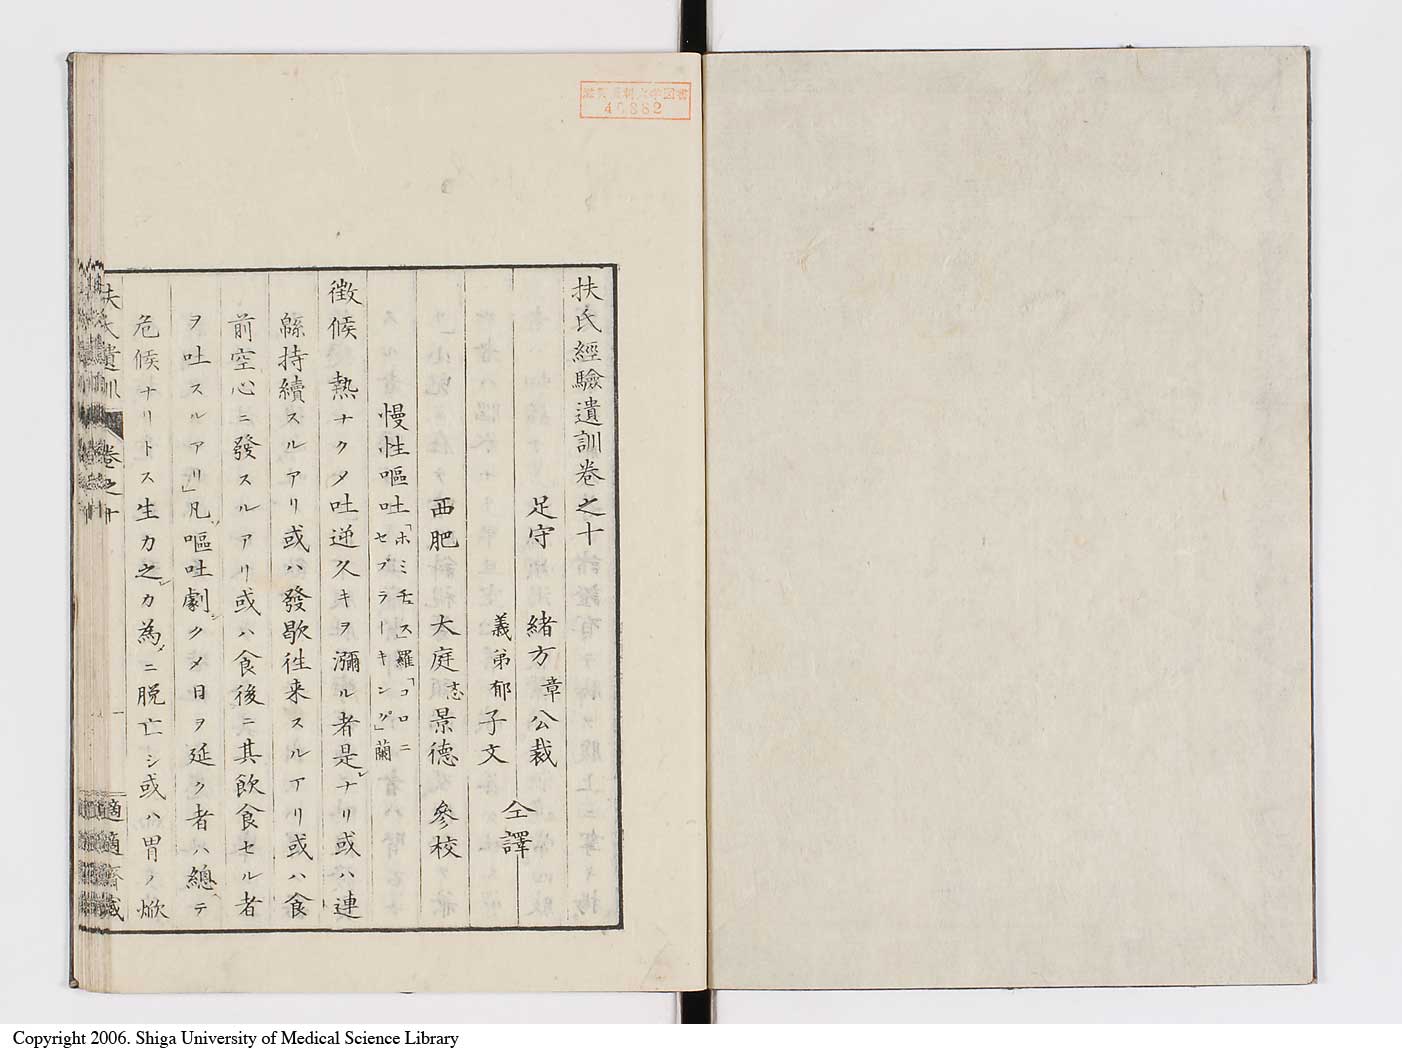 扶氏經驗遺訓卷之十
足守 緒方章公裁
義弟郁子文
仝譯
西肥 大庭忞景德 參校
慢性嘔吐「ホミチュス」羅「コロニ
セブラーキング」蘭
徵候 熱ナク夕吐逆久キヲ瀰ル者是レナリ或ハ連
緜持續スルアリ或ハ發歇徃来スルアリ或ハ食
前空心ニ發スルアリ或ハ食後ニ其飲食セル者
ヲ吐スルアリ」凡ソ嘔吐劇シクメ日ヲ延ク者ハ總ヘテ
危候ナリトス生力之レカ為メニ脱亡シ或ハ胃ノ焮
扶氏遺訓 卷之十
一
適適齋藏
46382
Copyright 2006. Shiga University of Medical Science Library